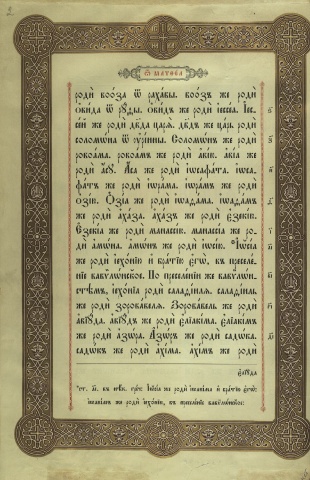 2
Ѿ МАТѲЕА
роди̑ воо́за ѿ раха́вы. воо́зъ же роди̑
ѻ҆ви́да ѿ рꙋ́ды. ѻ҆ви́дъ же роди̑ і҆ессе́а. І҆ес-
се́й же роди̑ дв҃да царѧ̀. дв҃дъ же ца́рь роди̑
соломѡ́на ѿ ᲂу҆рі́ины. Соломѡ́нъ же роди̑
ровоа́ма. ровоа́мъ же роди̑ а҆ві́ю. а҆ві́а же
роди̑ а҆́сꙋ. А҆́са же роди̑ і҆ѡсафа́та. і҆ѡса-
фа́тъ же роди̑ і҆ѡра́ма. і҆ѡра́мъ же роди̑
ѻ҆зі́ю. Ѻ҆зі́а же роди̑ і҆ѡаѳа́ма. і҆ѡаѳа́мъ
же роди̑ а҆ха́за. а҆ха́зъ же роди̑ є҆зекі́ю.
Є҆зекі́а же роди̑ манассі́ю. манассі́а же ро-
ди̑ а҆мѡ́на. а҆мѡ́нъ же роди̑ і҆ѡсі́ю. І҆ѡсі́а
же роди̑ і҆ехо́нію и҆ бра́тїю є҆гѡ̀, въ преселе́-
нїе вавѷлѡ́нское. По преселе́нїи же вавѷлѡ́н-
стѣмъ, і҆ехо́нїа роди̑ салаѳі́илѧ. салаѳі́иль
же роди̑ зорова́велѧ. Зорова́вель же роди̑
а҆вїꙋ́да. а҆вїꙋ́дъ же роди̑ є҆лїакі́ма. є҆лїакі́мъ
же роди̑ а҆зѡ́ра. А҆зѡ́ръ же роди̑ садѡ́ка.
садѡ́къ же роди̑ а҆хі́ма. а҆хі́мъ же роди̑
є҆лїꙋ́да
же роди̑ і҆ѡакі́ма и҆ бра́тїю є҆гѡ̀:
і҆ѡакі́мъ же роди̑ і҆ехо́нїю, въ преселе́нїе вавѷлѡ́нское: